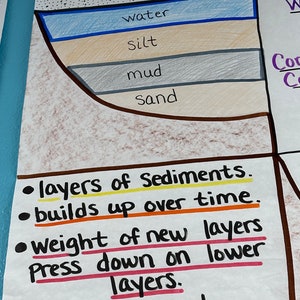 water
silt
mud
sand
• layers of sediments.
• builds up over time.
• weight of new layers
press down on lower
layers.